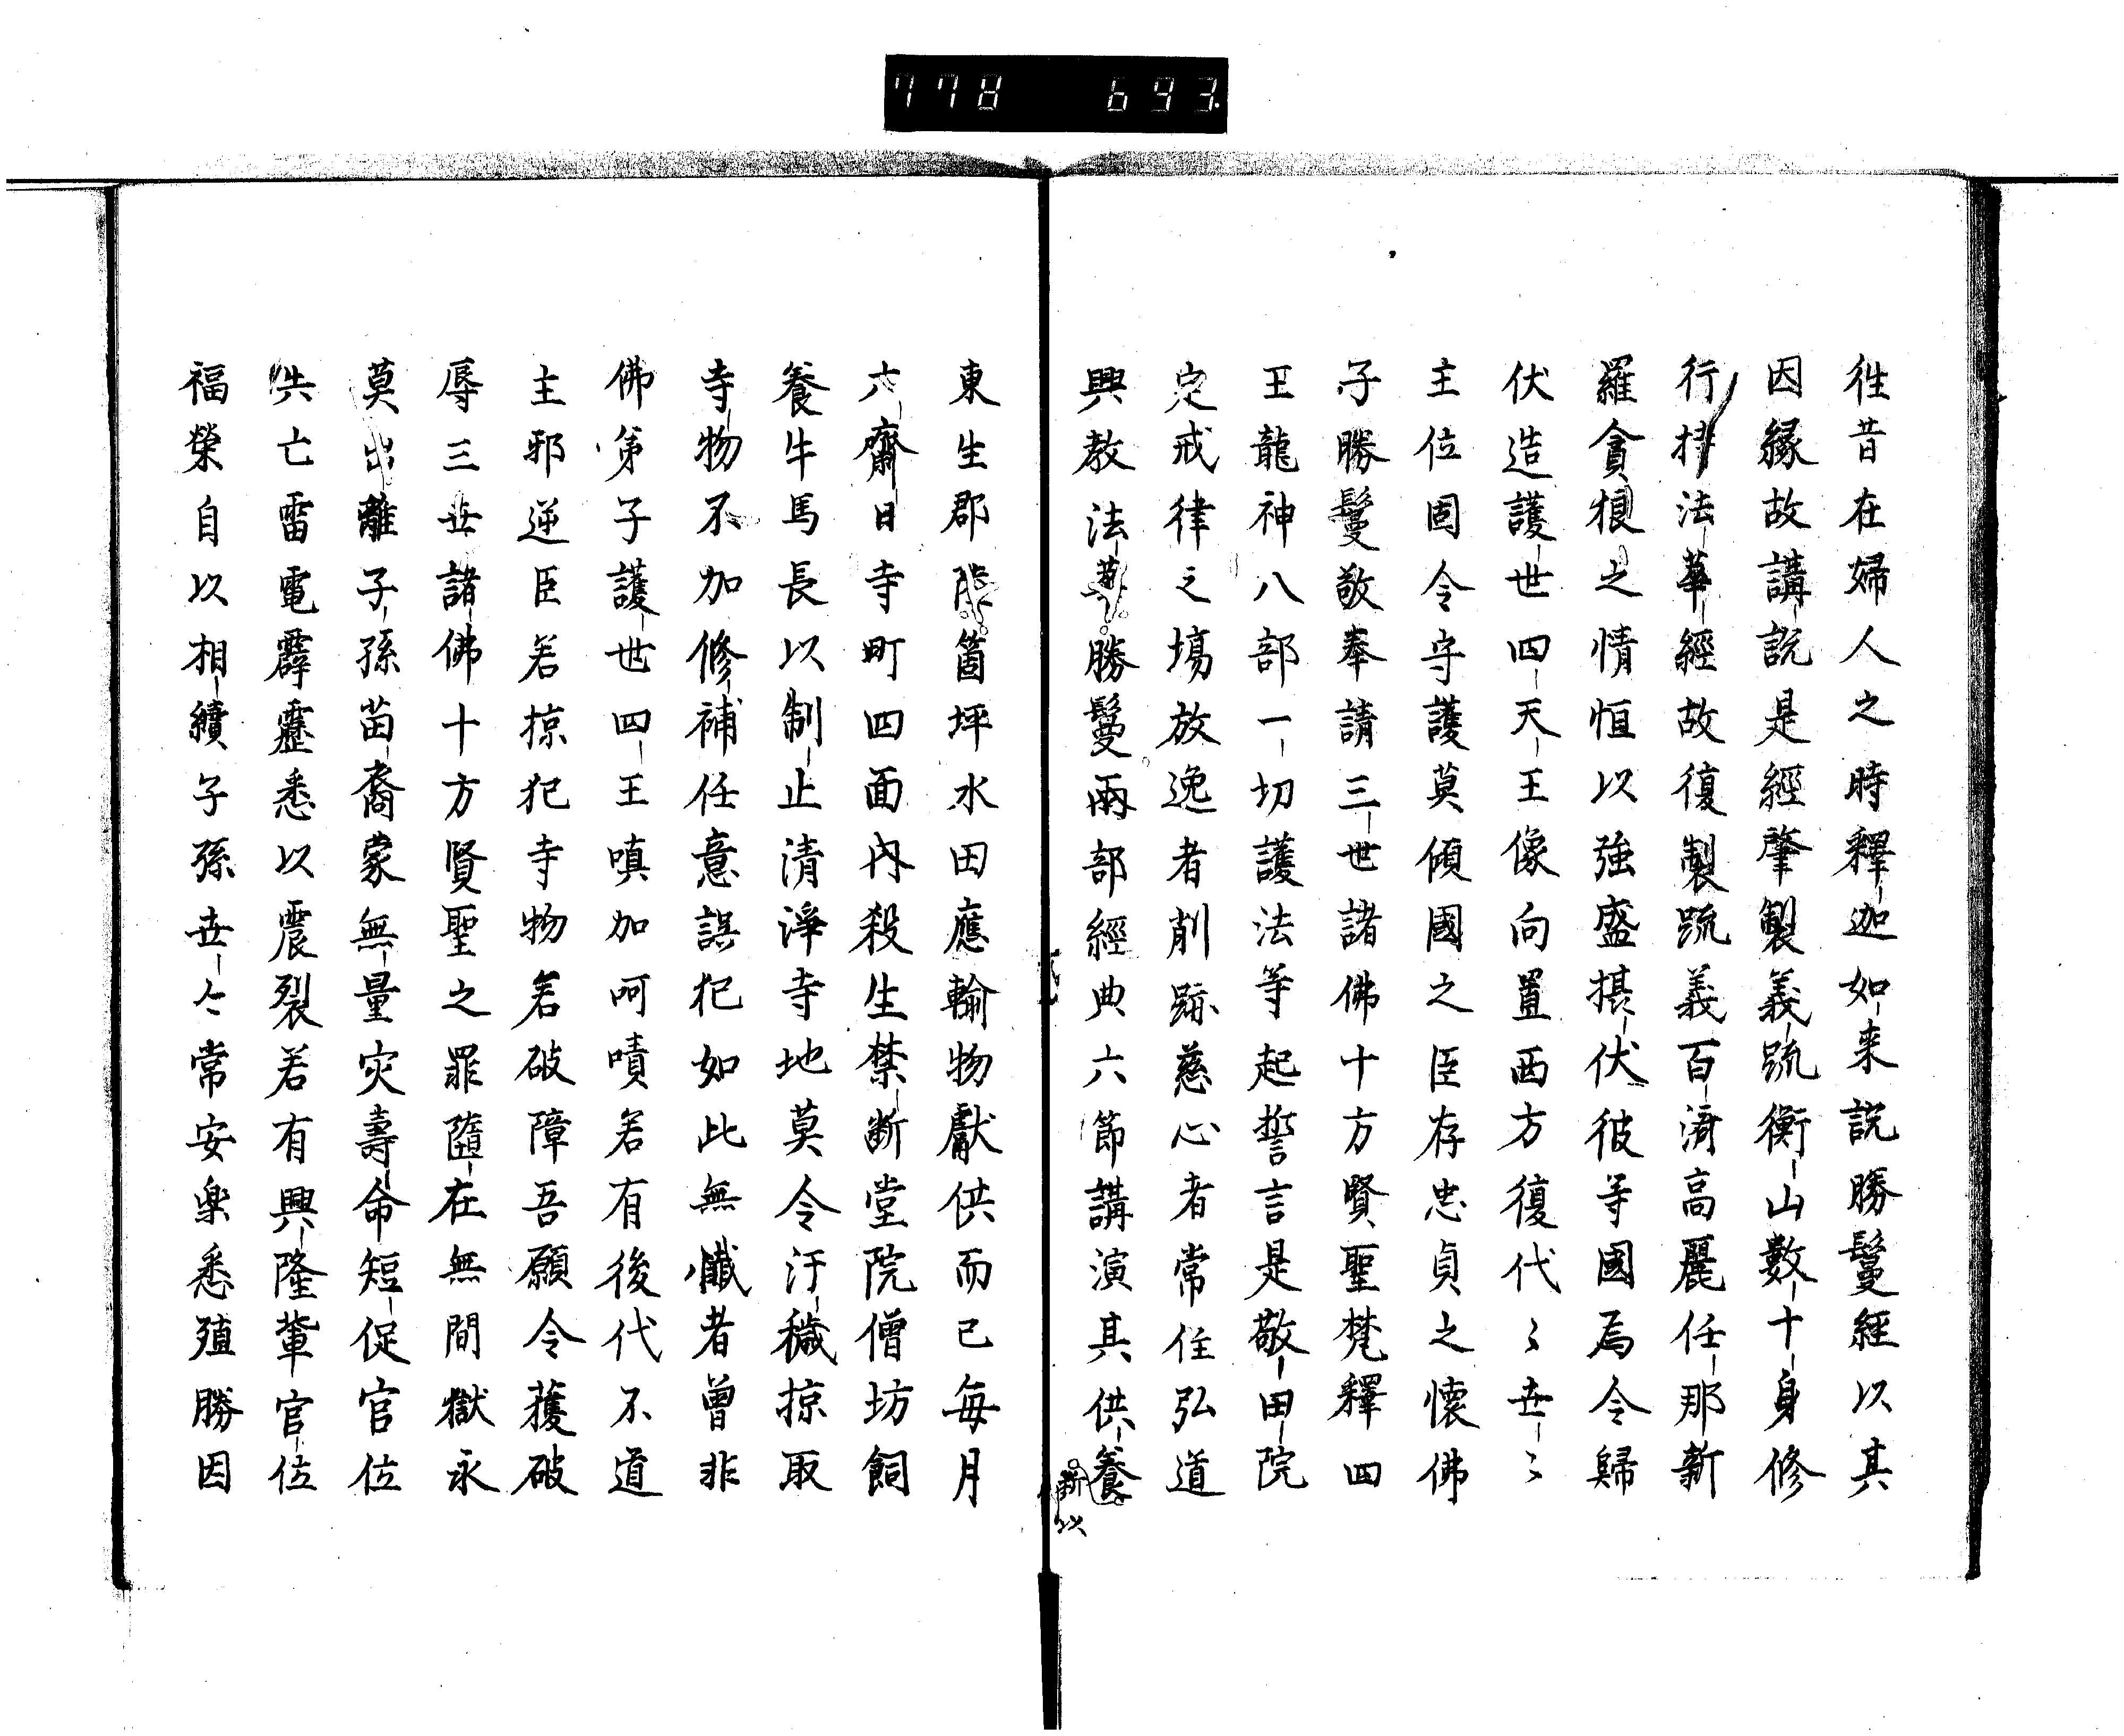 778 693.
徃昔在婦人之時釋迦如来説勝鬘經以其
因縁故講説是經肇製義䟽衡山數十身修
行持法華經故復製䟽義百済高麗任那新
羅貪狼之情恒以強盛摂伏彼等國為令歸
伏造護世四天王像向置西方復代〻世〻
主位固令守護莫傾國之臣存忠貞之懐佛
子勝鬘敬奉請三世諸佛十方賢聖梵釋四
王龍神八部一切護法等起誓言是敬田院
定戒律之場放逸者削跡慈心者常住弘道
興教法華勝鬘兩部經典六節講演其供養
新以
東生郡陸箇坪水田應輸物獻供而已毎月
六齋日寺町四面内殺生禁断堂院僧坊飼
養牛馬長以制止清淨寺地莫令汙穢掠取
寺物不加修補任意誤犯如此無懺者曽非
佛弟子護世四王嗔加呵嘖若有後代不道
主邪逆臣若掠犯寺物若破障吾願令獲破
辱三世諸佛十方賢聖之罪墮在無間獄永
莫出離子孫苗裔蒙無量灾壽命短促官位
失亡雷電霹靂悉以震裂若有興隆輩官位
福榮自以相續子孫世々常安楽悉殖勝因